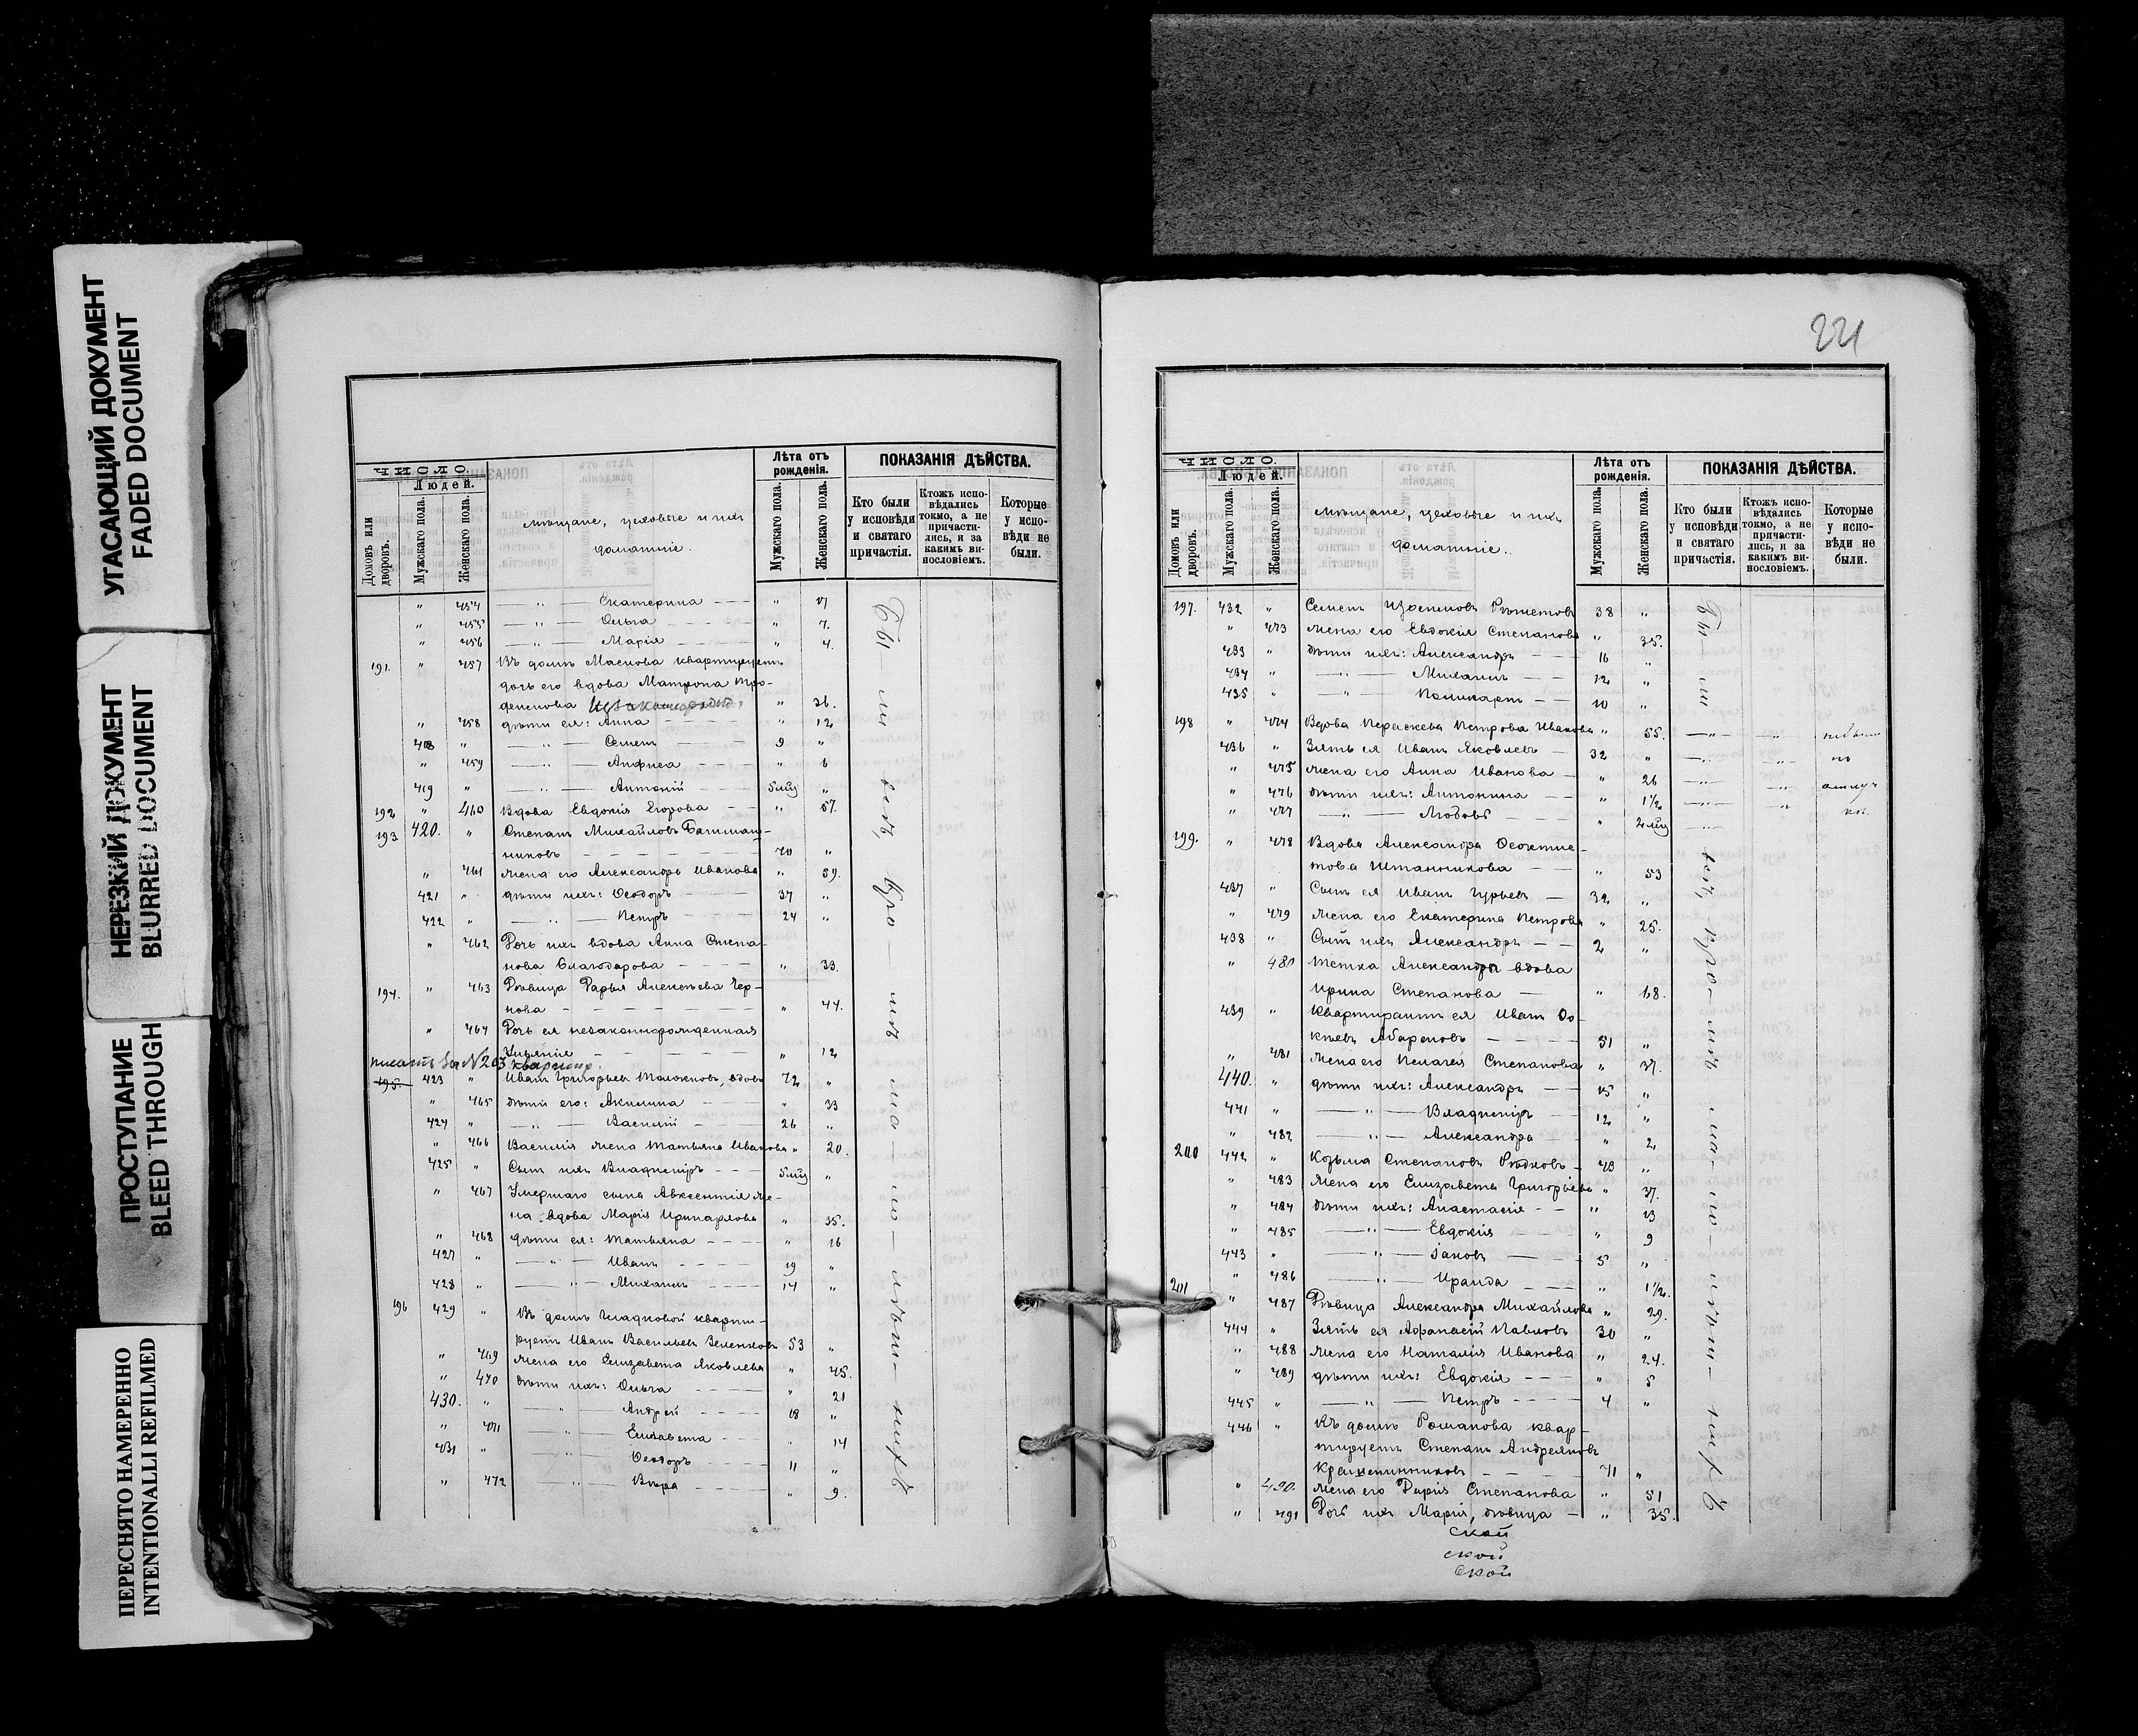 УГАСАЮЩИЙ ДОКУМЕНТ
FADED DOCUMENT
НЕРЕЗКИЙ ДОКУМЕНТ
BLURRED DOCUMENT
ПРОСТУПАНИЕ
BLEED THROUGH
ПЕРЕСНЯТО НАМЕРЕННО
INTENTIONALLI REFILMED
ЧИСЛО.
Людей.
Домовъ или дворовъ.
Мужскаго пола.
Женскаго пола.
Мѣщане, цеховые и ихъ
домашніе.
Лѣта отъ рожденія.
Мужскаго пола.
Женскаго пола.
ПОКАЗАНІЯ ДѢЙСТВА.
Кто были у исповѣди и святаго причастія.
Ктожъ исповѣдались токмо, а не причастились, и за какимъ винословіемъ.
Которые у исповѣди не были.
" 454 — " — Екатерина — "
" 455 — " — Ольга — " 7.
" 456 — " — Марія — " 4.
191. " 457 Въ домѣ Маслова квартируетъ
дочь его вдова Матрона
" 36.
" 458 дѣти ея: Анна — " 12
418 " — " — Семенъ — 9 "
" 459 — " — Анфиса — " 6
419 " — " — Антоній — 5 мѣс "
192 " 460 Вдова Евдокія Егорова — " 57.
193 420. " Степанъ Михайловъ Башмаш-
никовъ — 70 "
" 461 Жена его Александра Иванова " 59.
421 " дѣти ихъ: Ѳеодоръ — 37 "
422 " — " — Петръ — 24 "
" 462 Дочь ихъ вдова Анна Степа-
нова Благодарова — " 33.
194. " 463 Дѣвица Дарья Алексѣева Чер-
нова — " 44.
" 464 Дочь ея незаконнорожденная
Ульянія — " 12
писать въ № 203 квартир.
195. 423 " Иванъ Григорьевъ вдовъ 72 "
" 465 дѣти его: Акилина — " 33
424 " — " — Василій — 26 "
" 466 Василія жена Татьяна Иванова " 20.
425 " Сынъ ихъ Владиміръ — 5 мѣс "
" 467 Умершаго сына Авксентія же-
на вдова Марія Иринархова " 35.
" 468 дѣти ея: Татьяна — " 16
427 " — " — Иванъ — 19 "
428 " — " — Михаилъ — 14 "
196 429 " Въ домѣ Гладковой кварти-
руетъ Иванъ Васильевъ Зеленковъ 53 "
" 469 Жена его Елизавета Яковлева " 45.
" 470 дѣти ихъ: Ольга — " 21
430. " — " — Андрей — 18 "
" 471 — " — Елизавета — " 14
431 " — " — Ѳеодоръ — 11 "
" 472 — " — Вѣра — " 9.
221
ЧИСЛО.
Людей.
Домовъ или дворовъ.
Мужскаго пола.
Женскаго пола.
Мѣщане, цеховые и ихъ
домашніе.
Лѣта отъ рожденія.
Мужскаго пола.
Женскаго пола.
ПОКАЗАНІЯ ДѢЙСТВА.
Кто были у исповѣди и святаго причастія.
Ктожъ исповѣдались токмо, а не причастились, и за какимъ винословіемъ.
Которые у исповѣди не были.
197. 432 " Семенъ 38 "
" 473 Жена его Евдокія Степанова " 35.
433 " дѣти ихъ: Александръ — 16 "
434 " — " — Михаилъ — 12 "
435 " — " — Поликарпъ — 10 "
198 " 474 Вдова Параскева Петрова Иванова " 55.
436 " Зять ея Иванъ Яковлевъ — 32 "
" 475 Жена его Анна Иванова — " 26
" 476 дѣти ихъ: Антонина — " 1½
" 477 — " — Любовь " 2 мѣс
199. " 478 Вдова Александра Ѳеоктис-
това Штанникова — " 53
437 " Сынъ ея Иванъ Гурьевъ — 32 "
" 479 Жена его Екатерина Петрова " 25.
438 " Сынъ ихъ Александръ — 2 "
" 480 Тетка Александра вдова
Ирина Степанова — " 68.
439 " Квартирантъ ея Иванъ Ѳо-
51 "
" 481 Жена его Пелагея Степанова " 37.
440. " дѣти ихъ: Александръ — 15 "
441 " — " — Владиміръ — 12 "
" 482 — " — Александра " 2
200 442 " Козьма Степановъ Рыжковъ — 43 "
" 483 Жена его Елизавета Григорьева " 37.
" 484 дѣти ихъ: Анастасія — " 13
" 485 — " — Евдокія " 9
443 " — " — Іаковъ — 5 "
" 486 — " — Ираида " 1½.
201 " 487 Дѣвица Александра Михайлова " 29.
444 " Зять ея Афанасій Павловъ 30 "
" 488 Жена его Наталія Иванова " 24.
" 489 дѣти ихъ: Евдокія — " 5
445 " — " — Петръ — 4 "
446 " Въ домѣ Романова квар-
тируетъ Степанъ Андреяновъ
Крашенинниковъ — 71 "
" 490. Жена его Дарія Степанова " 51
" 491 Дочь ихъ Марія, дѣвица — " 35.
ской
ской
ской